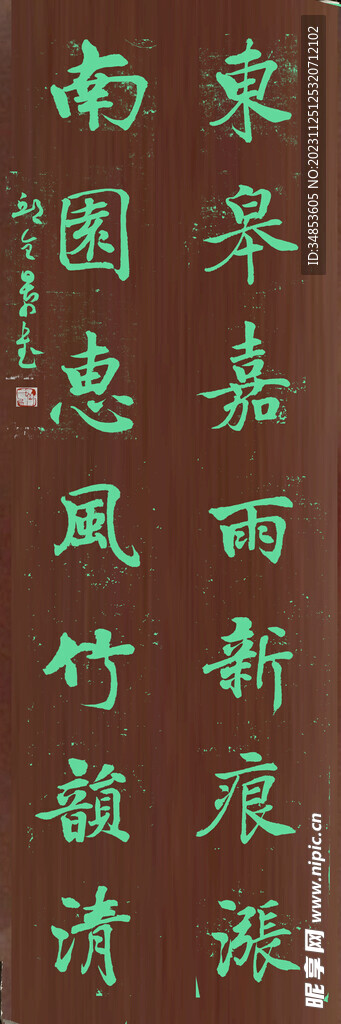 東皋嘉雨新痕漲
南園恵風竹韻清
ID:34853605 NO:20231125125320712102
昵享网 www.nipic.cn